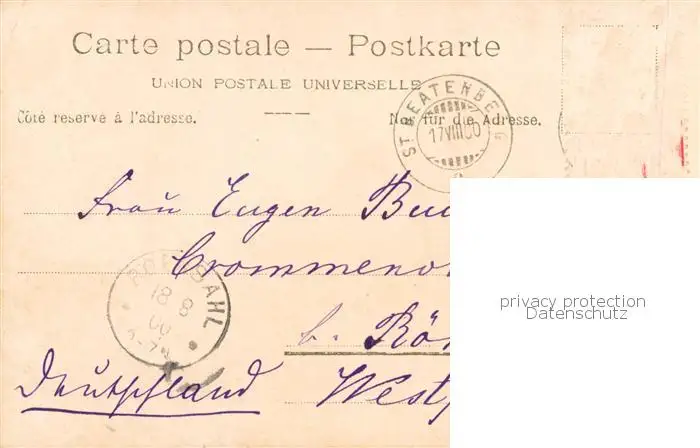 Carte postale — Postkarte
UNION POSTALE UNIVERSELLE
Côté réservé à l'adresse. Nur für die Adresse.
ST. BEATENBERG
17 VIII 00
Frau Eugen
Crommeno
b. Rö
Westf
Deutschland
DAHL
18 8
00
privacy protection
Datenschutz